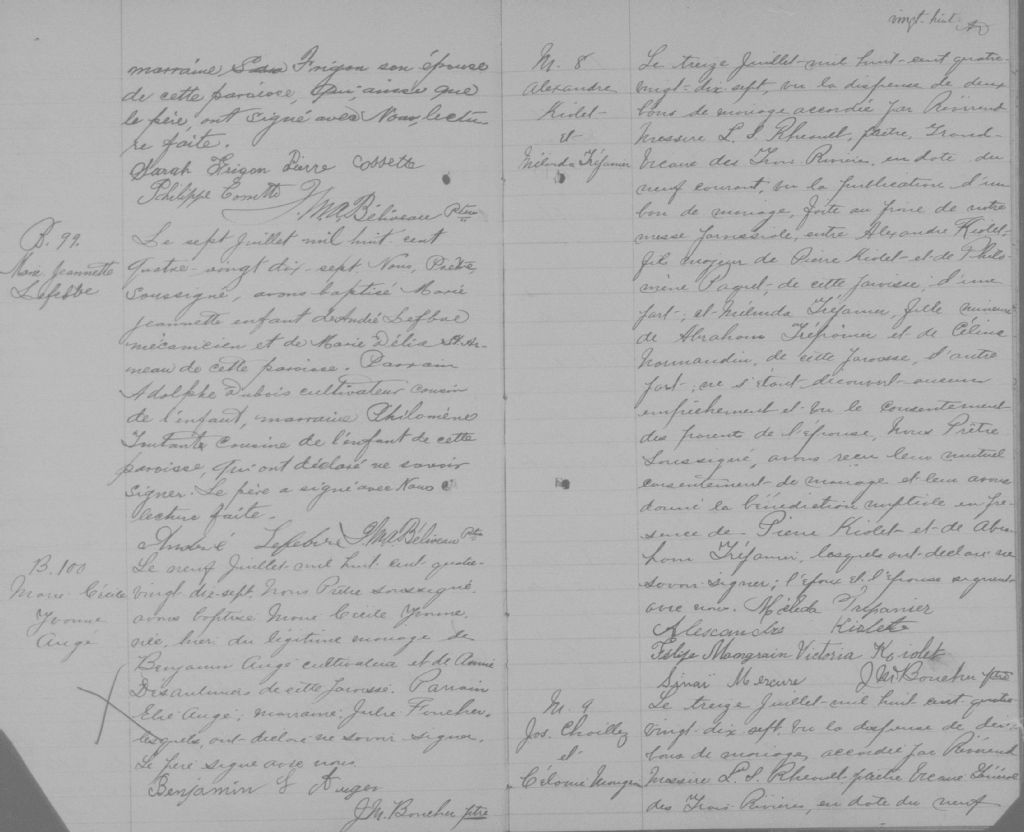 marraine Frigon son épouse
de cette paroisse, qui, ainsi que
le père, ont signé avec Nous, lectu
re faite.
Sarah Frigon Pierre Cossette
Philippe Cossette
J. M. A. Béliveau Ptre
B. 99.
Marie Jeannette
Lefebve
Le sept Juillet mil huit cent
quatre-vingt dix-sept. Nous, Prêtre,
soussigné, avons baptisé Marie
Jeannette enfant d'André Lefbve
mécanicien et de Marie Délia St. Ar-
neau de cette paroisse. Parrain
Adolphe Dubois cultivateur cousin
de l'enfant, marraine Philomène
cousine de l'enfant de cette
paroisse, qui ont déclaré ne savoir
signer. Le père a signé avec Nous
lecture faite.
André Lefebvre J. M. A. Béliveau Ptre
B. 100
Marie Cécile
Yvonne
Augé
Le neuf Juillet mil huit cent quatre-
vingt dix-sept, Nous Prêtre soussigné
avons baptisé Marie Cécile Yvonne,
née, hier du légitime mariage de
Benjamin Augé cultivateur et de Annie
Désaulniers de cette paroisse. Parrain
Elie Augé; marraine Julie Foucher,
lesquels, ont déclaré ne savoir signer.
Le père signe avec nous
Benjamin Auger
J. M. Boucher ptre
vingt-huit
M. 8
Alexandre
Kiolet
et
Mélinda Trépanier
Le treize Juillet mil huit cent quatre-
vingt-dix sept, vu la dispense de deux
bans de mariage accordée par Révérend
Messire L. S. Rheault, prêtre, Grand-
Vicaire des Trois Rivières, en date du
neuf courant, vu la publication d'un
ban de mariage, faite au prône de notre
messe paroissiale, entre Alexandre Kiolet,
fils majeur de Pierre Kiolet et de Philo-
mène Paquet, de cette paroisse, d'une
part; et Mélinda Trépanier, fille mineure
de Abraham Trépanier et de Célina
Normandin, de cette paroisse, d'autre
part; ne s'étant découvert aucun
empêchement et vu le consentement
des parents de l'épouse, Nous Prêtre
soussigné, avons reçu leur mutuel
consentement de mariage et leur avons
donné la bénédiction nuptiale en pré-
sence de Pierre Kiolet et de Abra-
ham Trépanier, lesquels ont déclaré ne
savoir signer; l'époux et l'épouse signent
avec nous. Mélida Trépanier
Alexandre Kiolet
Felixe Mongrain Victoria Kiolet
Sinaï Mercure J. M. Boucher ptre
M. 9
Jos. Choillez
et
Mongrain
Le treize Juillet mil huit cent quatre
vingt dix sept, vu la dispense de deux
bans de mariage, accordée par Révérend
Messire L. S. Rheault prêtre Vicaire Général
des Trois-Rivières, en date du neuf